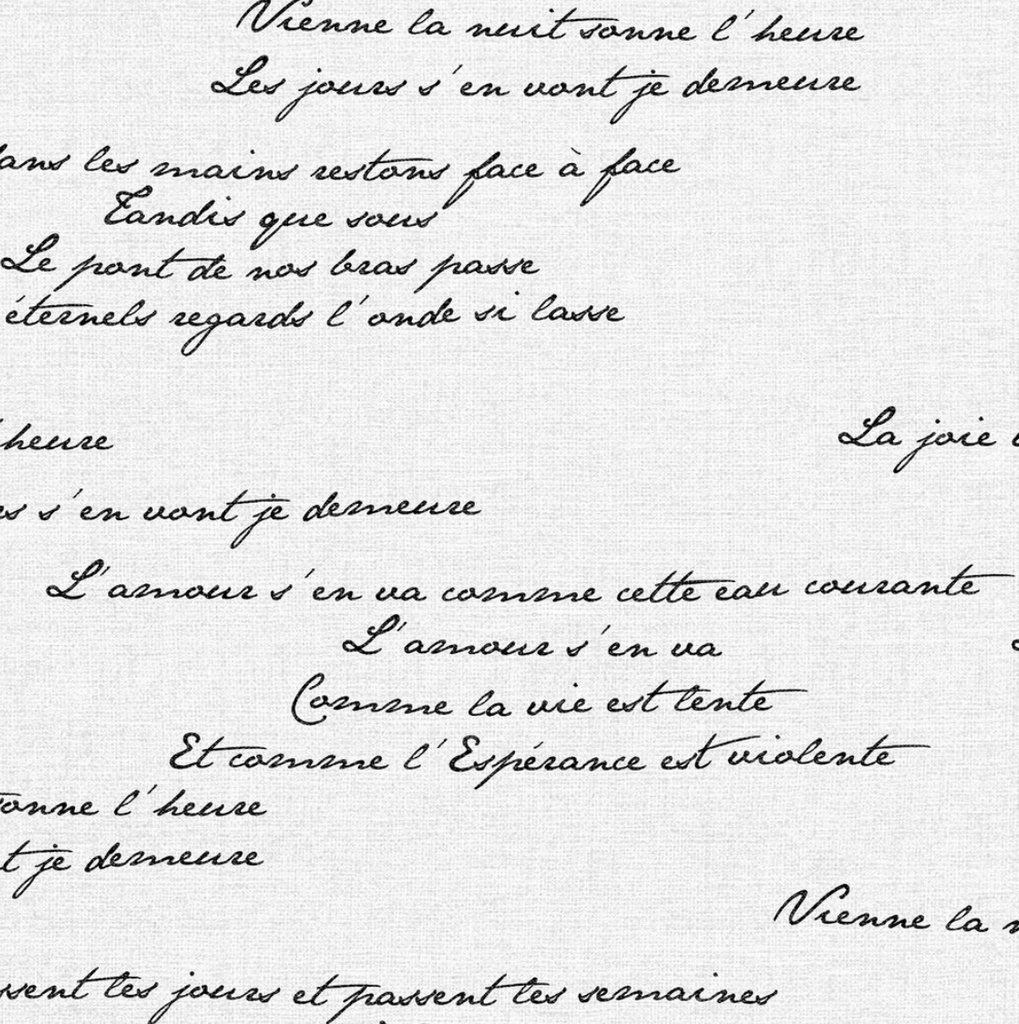 Vienne la nuit sonne l'heure
Les jours s'en vont je demeure
dans les mains restons face à face
Tandis que sous
Le pont de nos bras passe
éternels regards l'onde si lasse
heure
La joie
s'en vont je demeure
L'amour s'en va comme cette eau courante
L'amour s'en va
Comme la vie est lente
Et comme l'Espérance est violente
sonne l'heure
je demeure
Vienne la
les jours et passent les semaines